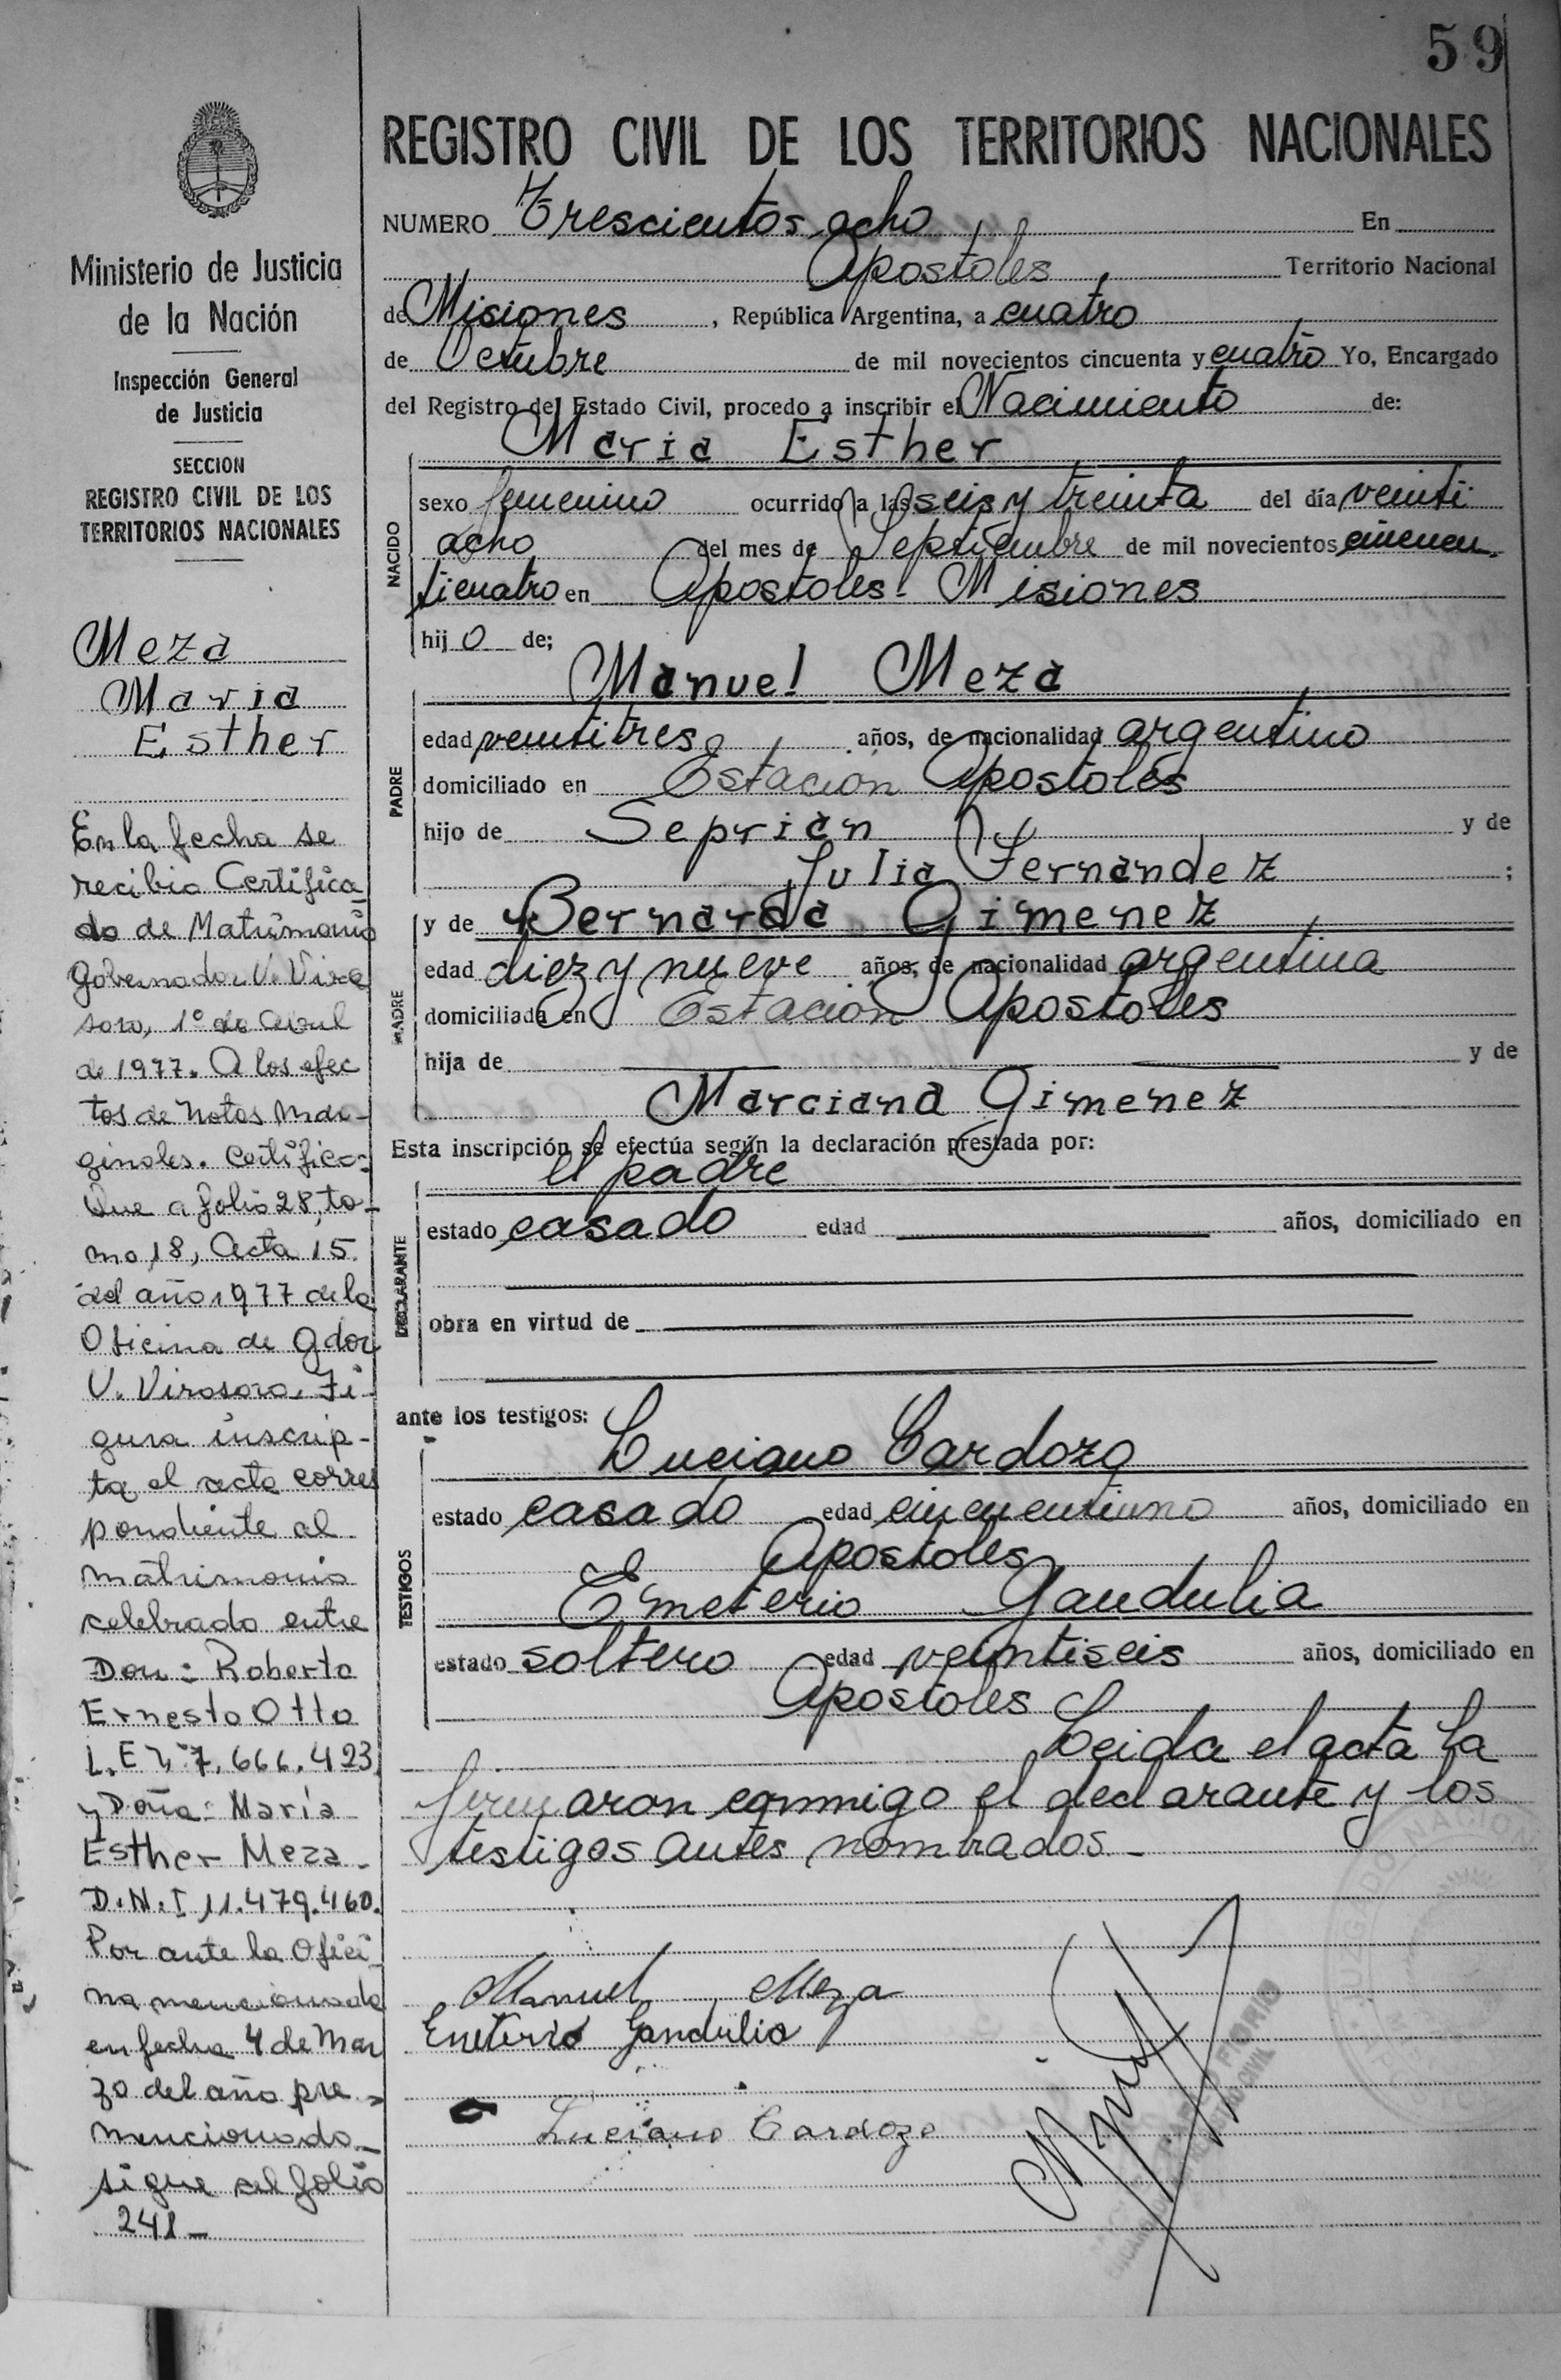 59
REGISTRO CIVIL DE LOS TERRITORIOS NACIONALES
Ministerio de Justicia
de la Nación
Inspección General
de Justicia
SECCION
REGISTRO CIVIL DE LOS
TERRITORIOS NACIONALES
Meza
Maria
Esther
En la fecha se
recibio Certifica
do de Matrimonio
Gobernador V. Vira
soro, 1º de Abril
de 1977. A los efec
tos de notas mar-
ginales. Certifico:
Que a folio 28, to-
mo 18, Acta 15
del año 1977 de la
Oficina de Gdor
V. Virasoro, Fi-
gura inscrip-
ta el acta corres
pondiente al
matrimonio
celebrado entre
Don: Roberto
Ernesto Otto
L.E 7.666.423
y Doña: María
Esther Meza-
D.N.I 11.479.460.
Por ante la Ofici
na mencionada
en fecha 4 de Mar
zo del año pre-
mencionado-
sigue al folio
241-
NUMERO Trescientos ocho En
Apostoles Territorio Nacional
de Misiones, República Argentina, a cuatro
de Octubre de mil novecientos cincuenta y cuatro Yo, Encargado
del Registro del Estado Civil, procedo a inscribir el Nacimiento de:
Maria Esther
NACIDO
sexo femenino ocurrido a las seis y treinta del día veinti
ocho del mes de Septiembre de mil novecientos cincuen
ticuatro en Apostoles- Misiones
hijo de;
Manuel Meza
PADRE
edad veintitres años, de nacionalidad argentino
domiciliado en Estación Apostoles
hijo de Seprian y de
Julia Fernandez ;
y de Bernarda Gimenez
MADRE
edad diez y nueve años, de nacionalidad argentina
domiciliada en Estación Apostoles
hija de y de
Marciana Gimenez
Esta inscripción se efectúa según la declaración prestada por:
el padre
DECLARANTE
estado casado edad años, domiciliado en
obra en virtud de
ante los testigos:
Luciano Cardozo
TESTIGOS
estado casado edad cincuentiuno años, domiciliado en
Apostoles
Emeterio Gandulia
estado soltero edad veintiseis años, domiciliado en
Apostoles
Leida el acta la
firmaron conmigo el declarante y los
testigos antes nombrados-
Manuel Meza
Emeterio Gandulia
Luciano Cardozo